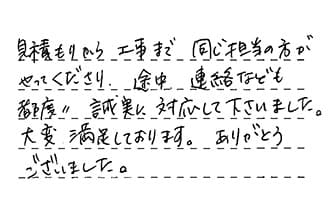 見積もりから 工事まで 同じ担当の方が
やってくださり、途中 連絡なども
都度〃 誠実に対応して下さいました。
大変 満足しております。ありがとう
ございました。